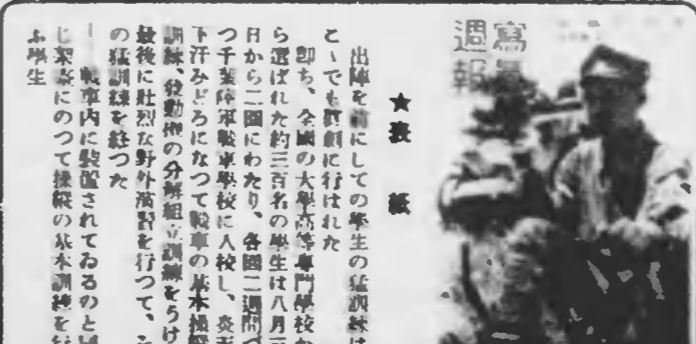 寫眞
週報
★表紙
出陣を前にしての學生の猛訓練は
とゝでも眞劍に行はれた
卽ち、全國の大學高等專門學校か
ら選ばれた約三百名の學生は八月
日から二囘にわたり、各囘二週間づ
つ千葉陸軍戰車學校に入校し、炎天
下汗みどろになつて戰車の基本操縱
訓練、發動機の分解組立訓練をうけ
最後に壯烈な野外演習を行つて、
の猛訓練を終つた
戰車内に裝置されてゐるのと同
じ架臺にのつて操縱の基本訓練を行
ふ學生